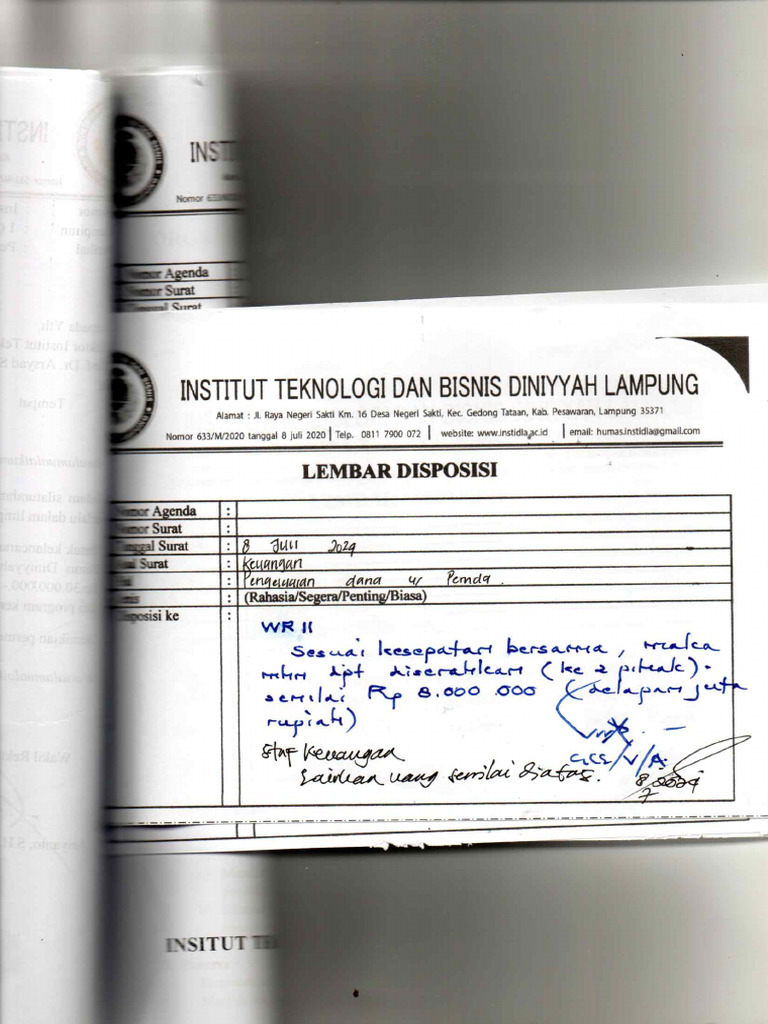 INSTI
Nomor 633/M/
Nomor Agenda
Nomor Surat
Tanggal Surat
INSTITUT TEKNOLOGI DAN BISNIS DINIYYAH LAMPUNG
Alamat : Jl. Raya Negeri Sakti Km. 16 Desa Negeri Sakti, Kec. Gedong Tataan, Kab. Pesawaran, Lampung 35371
Nomor 633/M/2020 tanggal 8 juli 2020 | Telp. 0811 7900 072 | website: www.instidla.ac.id | email: humas.instidla@gmail.com
LEMBAR DISPOSISI
Nomor Agenda :
Nomor Surat :
Tanggal Surat : 8 Juli 2024
Asal Surat : Keuangan
: Pengeluaran dana u/ Pemda.
: (Rahasia/Segera/Penting/Biasa)
Disposisi ke :
WR II
Sesuai kesepakatan bersama, maka
mhn dpt diserahkan (ke 2 pihak).
senilai Rp 8.000.000 (delapan juta
rupiah)
Staf Keuangan
Cairkan uang senilai diatas.
8/7 2024
INSITUT TE